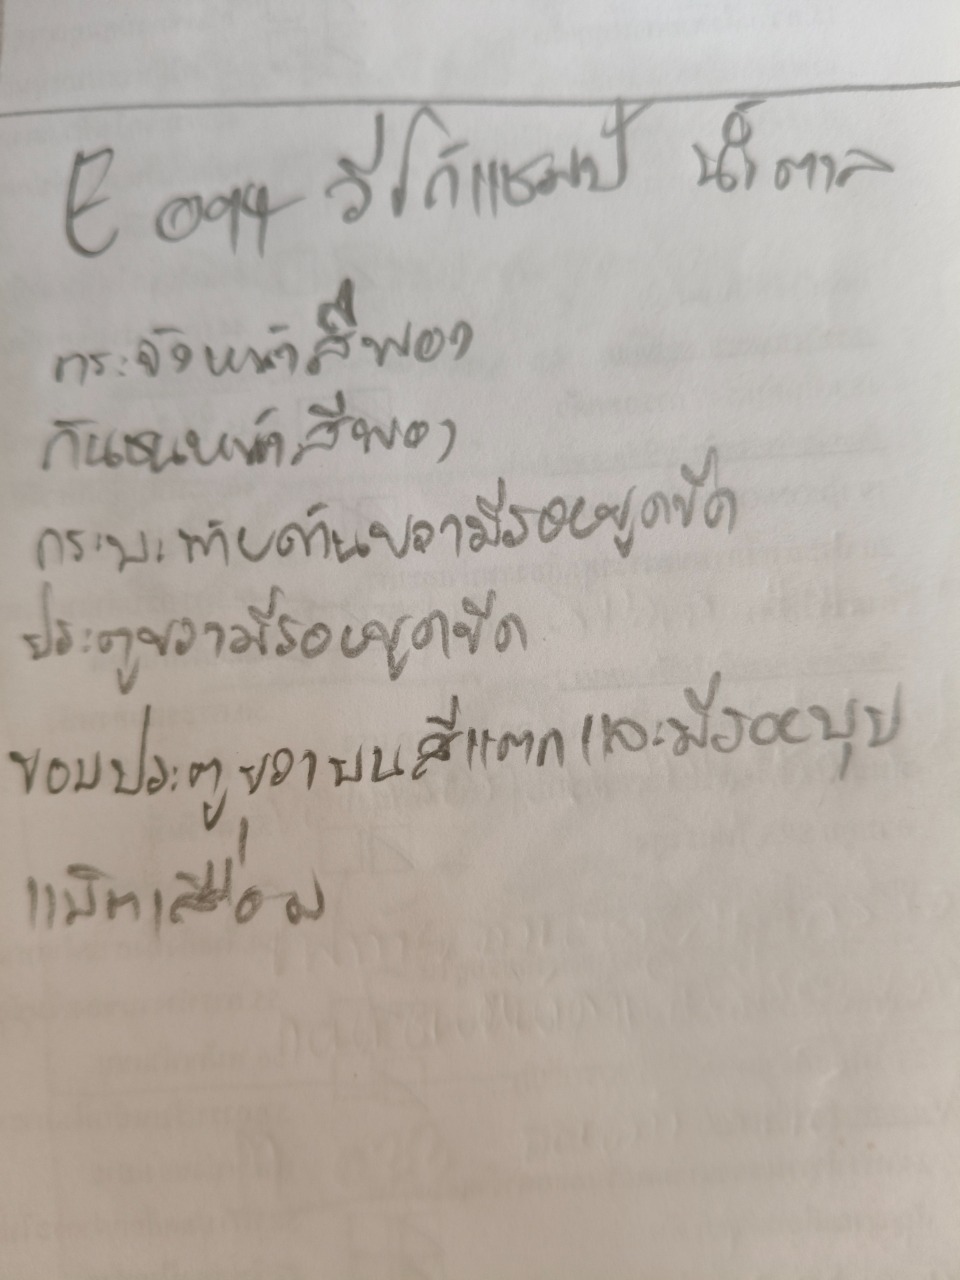 E 094 วีโก้แชมป์ น้ำตาล
กระจังหน้าสีพอง
กันชนหน้าสีพอง
กระบะท้ายด้านขวามีรอยขูดขีด
ประตูขวามีรอยขูดขีด
ขอบประตูขวาบนสีแตกและมีรอยบุบ
แบ็ตเสื่อม